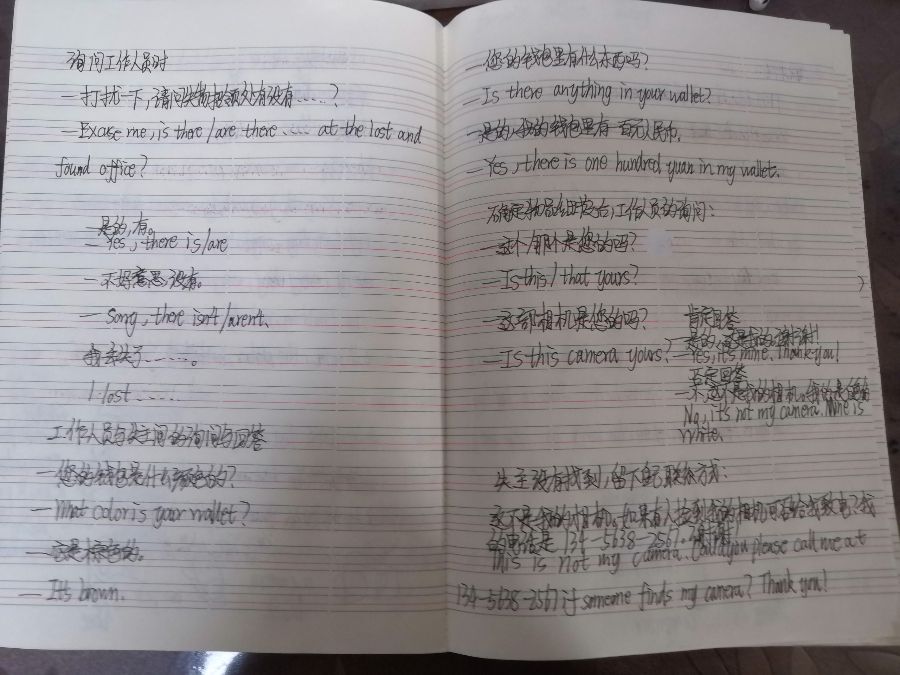 询问工作人员时
—打扰一下,请问失物招领处有没有……?
—Excuse me, is there /are there …… at the lost and
found office?
—是的,有。
—Yes, there is/are
—不好意思,没有。
—Sorry, there isn't/aren't.
我丢失了……。
I lost ……
工作人员与失主间的询问与回答
—您的钱包是什么颜色的?
—What color is your wallet?
—它是棕色的。
—It's brown.
—您的钱包里有什么东西吗?
—Is there anything in your wallet?
—是的,我的钱包里有一百元人民币。
—Yes, there is one hundred yuan in my wallet.
确定物品细节后,工作人员的询问:
—这个/那个是您的吗?
—Is this/that yours?
—这部相机是您的吗?
—Is this camera yours?
肯定回答
—是的,这是我的,谢谢!
—Yes, it's mine. Thank you!
否定回答
—不,这不是我的相机。我的是白色的
No, it's not my camera. Mine is
white.
失主没有找到,留下自己联系方式:
这不是我的相机。如果有人捡到我的相机可否给我致电?我
的电话是 134-5638-2567。谢谢!
This is not my camera. Could you please call me at
134-5638-2567 if someone finds my camera? Thank you!